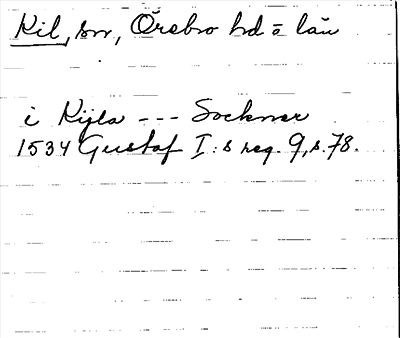 Kil, sn, Örebro hd o län
i Kijla --- Socknar
1534 Gustaf I:s reg. 9, s. 78.